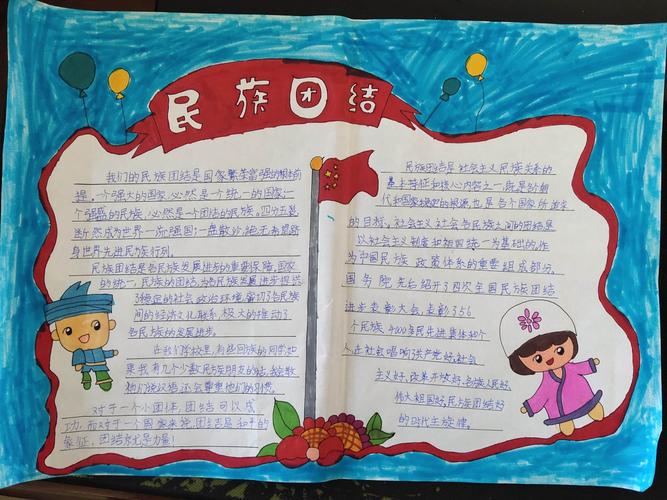 民族团结
我们的民族团结是国家繁荣富强的根本前
提,一个强大的国家,必然是一个统一的国家;一
个强盛的民族,必然是一个团结的民族,四分五裂
断然成为世界一流强国;一盘散沙,绝无希望跻
身世界先进民族行列。
民族团结是各民族发展进步的重要保障,国家
的统一,民族的团结,为各民族发展进步提供
了稳定的社会政治环境,密切了各民族
间的经济文化联系,极大的推动了
各民族的发展进步。
在我们学校里,有些回族的同学如
果我有几个少数民族朋友的话,
他们说汉语还会尊重他们的习惯。
对于一个小团体,团结可以成
功,而对于一个国家来说,团结是和平的
象征,团结就是力量!
民族团结是社会主义民族关系的
基本特征和核心内容之一,
代和国家 的根源,也是各个国家所追求
的目标,社会主义社会各民族之间的团结是
以社会主义制度和祖国统一为基础的,作
为中国民族政策体系的重要组成部分,
国务院先后召开了四次全国民族团结
进步表彰大会,表彰了56
个民族 4000年民先进集体和个
人在社会唱响共产党好,社会
主义好,改革开放好,各族人民好,
伟大祖国好,民族团结好
的时代主旋律。